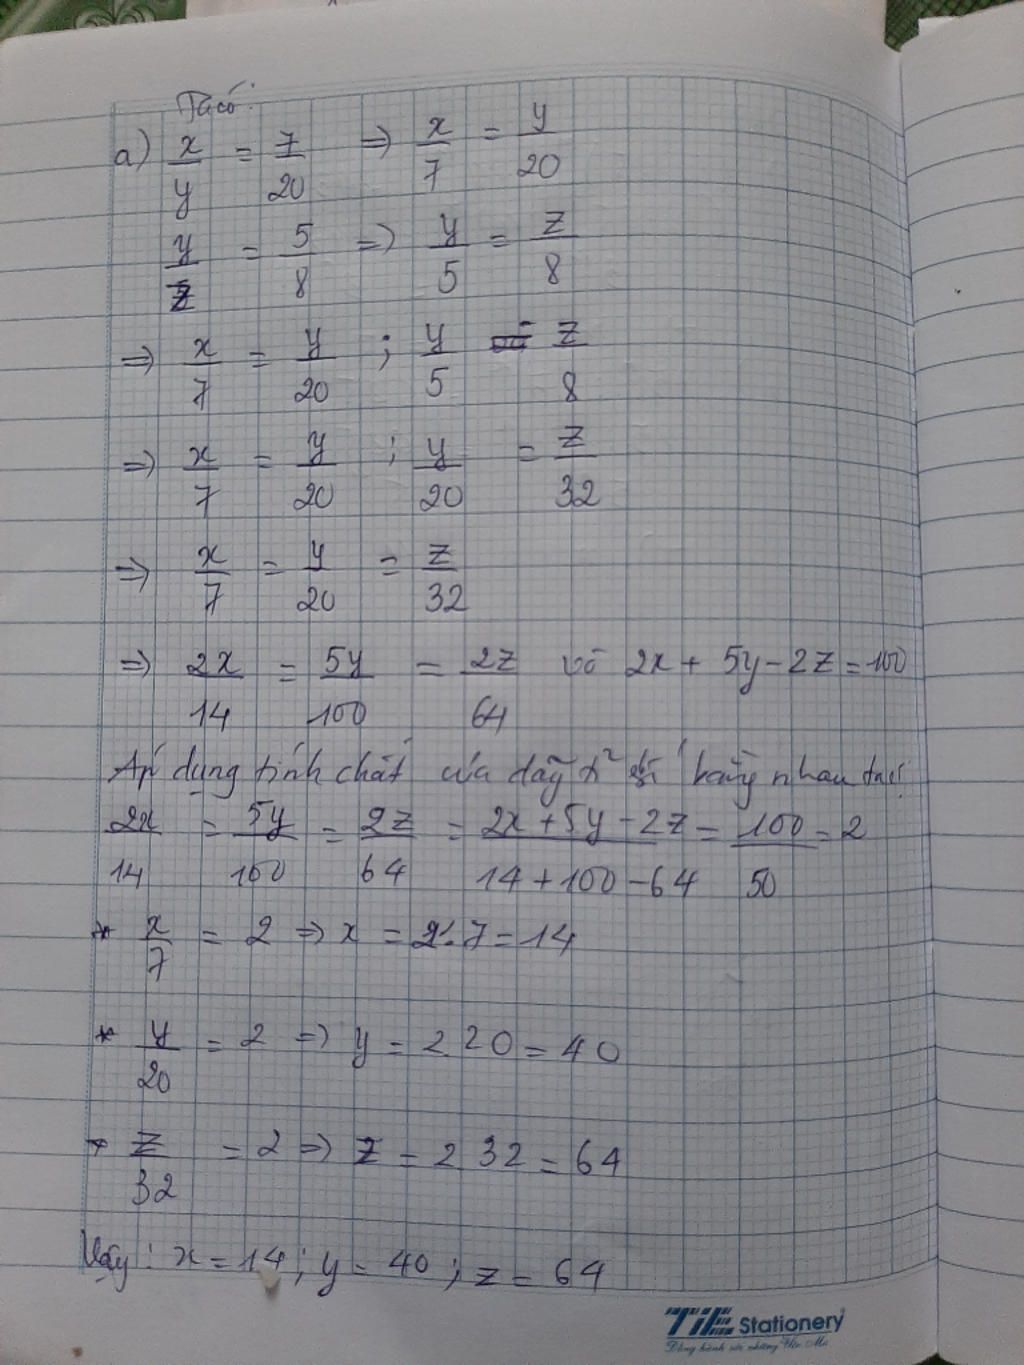 Ta có:
a) x/y = 7/20 => x/7 = y/20
y/z = 5/8 => y/5 = z/8
=> x/7 = y/20 ; y/5 = z/8
=> x/7 = y/20 ; y/20 = z/32
=> x/7 = y/20 = z/32
=> 2x/14 = 5y/100 = 2z/64 và 2x + 5y - 2z = 100
Áp dụng tính chất của dãy tỉ số bằng nhau ta có:
2x/14 = 5y/100 = 2z/64 = 2x + 5y - 2z/14 + 100 - 64 = 100/50 = 2
* x/7 = 2 => x = 2.7 = 14
* y/20 = 2 => y = 2 20 = 40
* z/32 = 2 => z = 2 32 = 64
Vậy : x = 14 ; y = 40 ; z = 64
TiE Stationery